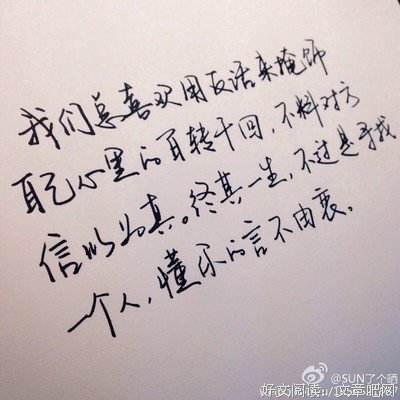 我们总喜欢用反话来掩饰
自己心里的百转千回，不料对方
信以为真。终其一生，不过是寻找
一个人，懂你的言不由衷。
@SUN了个晒
好文阅读：文章吧网